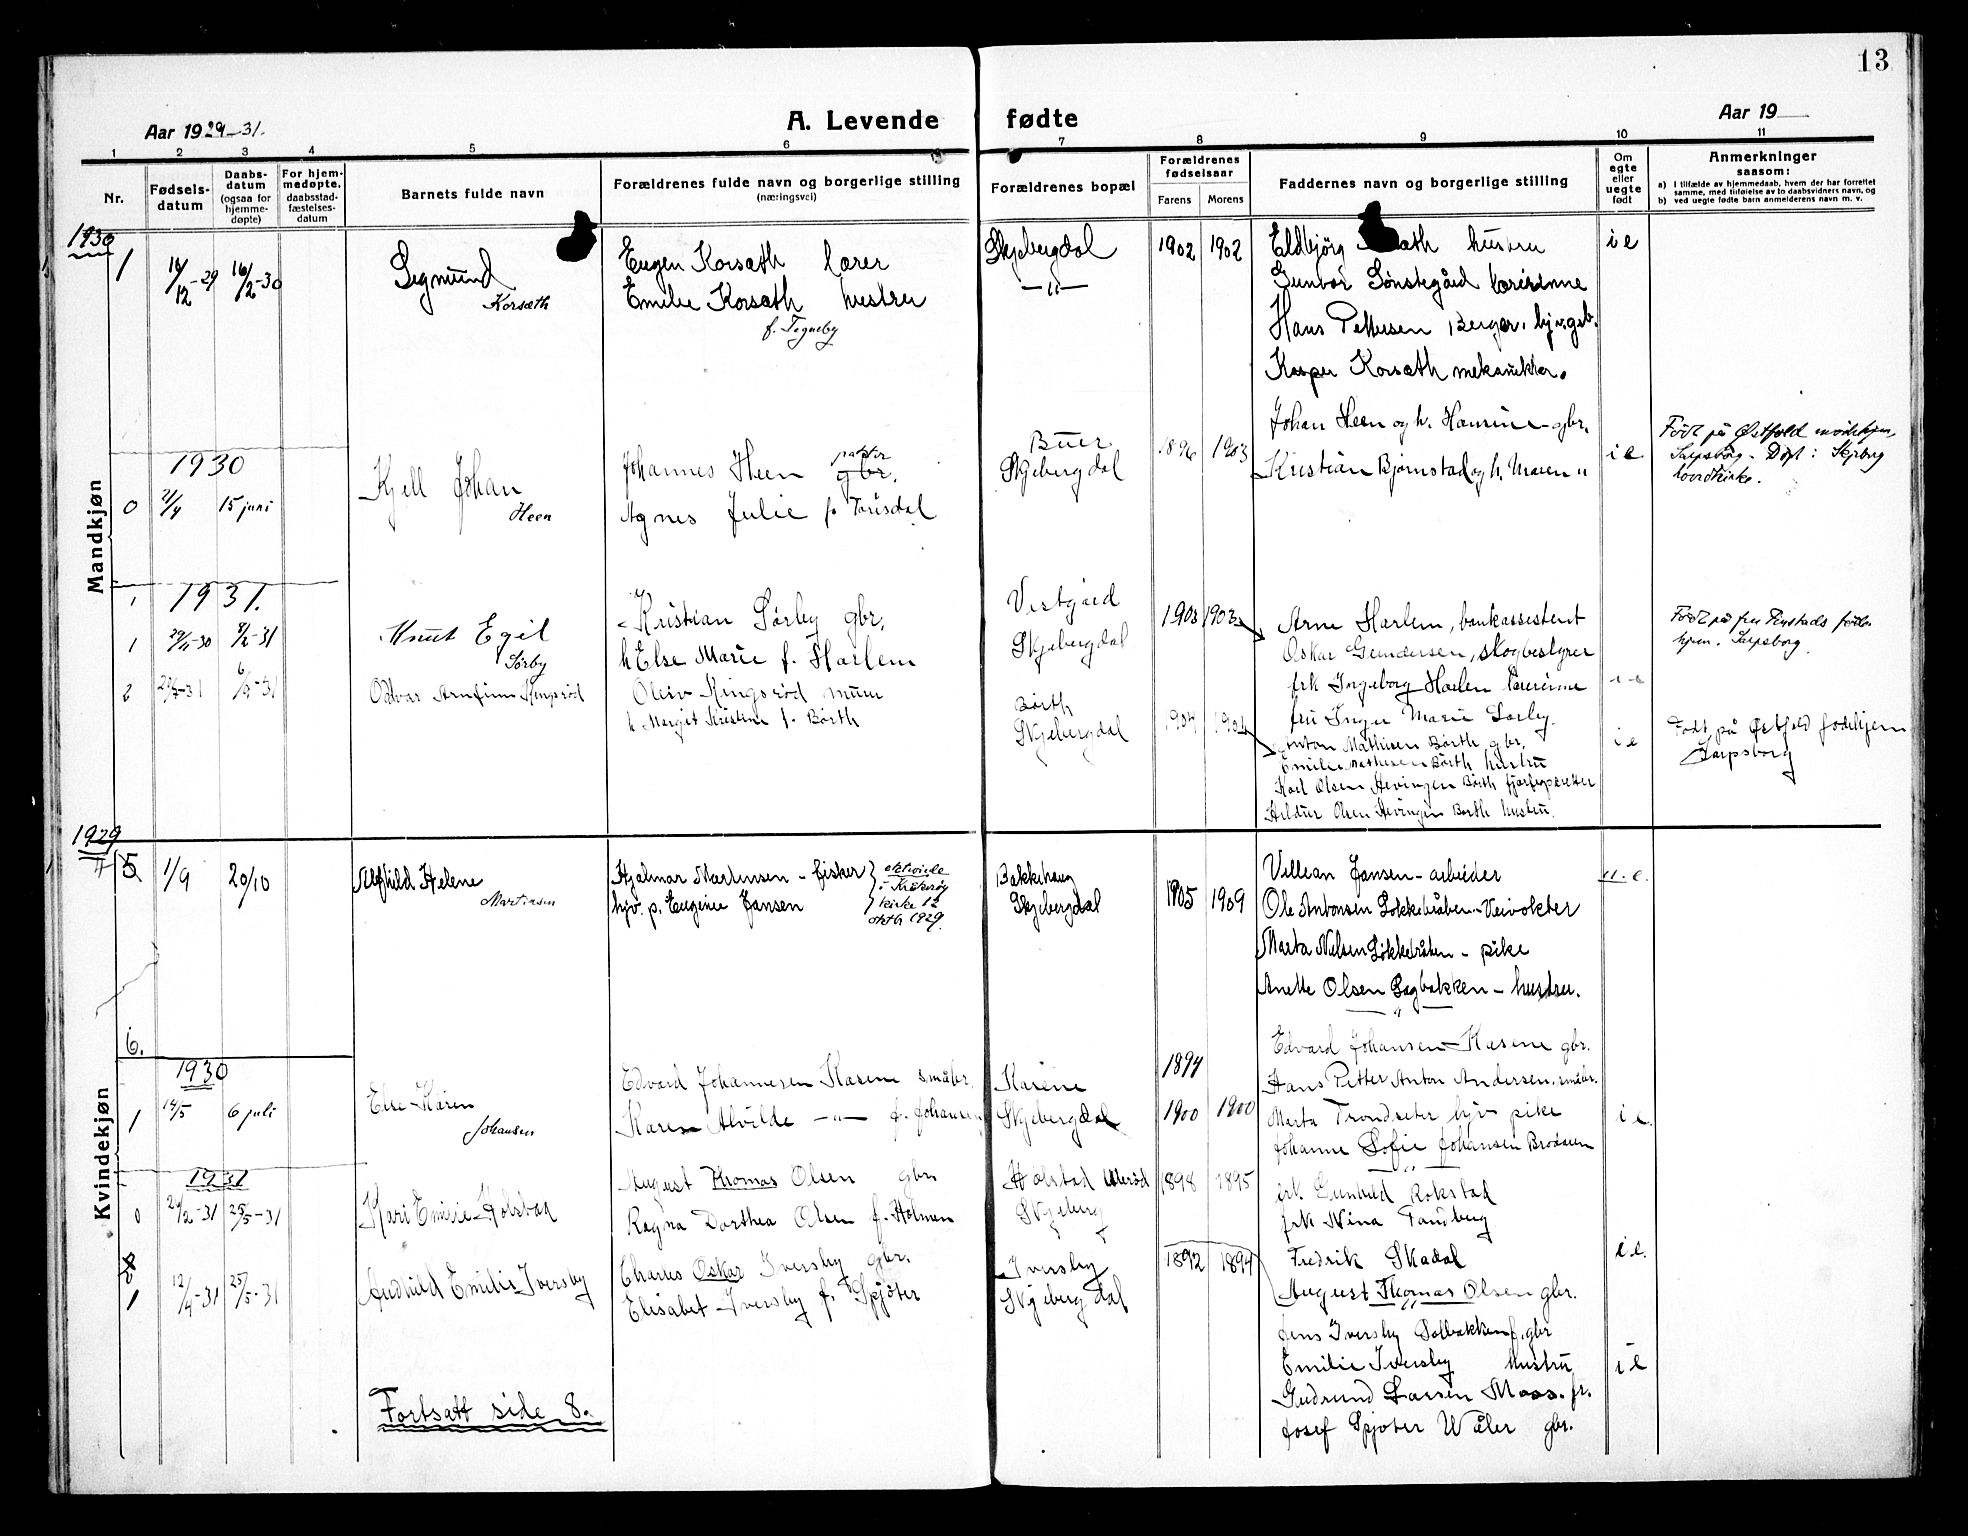 13
Aar 1929-31.
A. Levende fødte
Aar 19
1 2 3 4 5 6 7 8 9 10 11
Nr.
Fødsels-datum
Daabs-datum (ogsaa for hjemme-døpte)
For hjem-medøpte, daabsstad-fæstelses-datum
Barnets fulde navn
Forældrenes fulde navn og borgerlige stilling (næringsvei)
Forældrenes bopæl
Forældrenes fødselsaar
Farens Morens
Faddernes navn og borgerlige stilling
Om egte eller uegte født
Anmerkninger saasom:
a) I tilfælde av hjemmedaab, hvem der har forrettet samme, med tilføielse av to daabsvidners navn, og
b) ved uegte fødte barn anmelderens navn m. v.
Mandkjøn
1930
1 16/12-29 16/2-30
Sigmund
Korsæth
Eugen Korsæth lærer
Emilie Korsæth hustru
f. Tegneby
Skjebergdal
-"-
1902 1902
Eldbjörg hustru
Gunvor Sønstegård lærerinne
Hans Pettersen Berger,
Kasper Korsæth mekaniker.
i e
1930
0 21/4 15 juni
Kjell Johan
Heen
Johannes Heen gbr.
Agnes Julie f.
Buer
Skjebergdal
1896 1903
Johan Heen og h. Hansine gbr.
Kristian Bjørnstad og h. Maren "
i e
Født på Østfold mødrehjem,
Sarpsborg. Døpt i Skjeberg
hovedkirke.
1931.
1 29/11-30 8/2-31
Knut Egil
Sørby
Kristian Sørby gbr.
h Else Marie f. Harlem
Vestgård
Skjebergdal
1903 1903
Arne Harlem, bankassistent
Oskar Gundersen, skogbestyrer
frk Ingeborg Harlem lærerinne
fru Inger Marie Sørby.
Født på fru føde-
hjem. Sarpsborg.
2
Oddvar Arnfinn Kingsrød
Oleiv Kingsrød murer
h. Margit Kristine f. Børth
Børth
Skjebergdal
1904 1904
Anton Mathisen Børth gbr.
Emilie Mathisen Børth hustru
Karl Olsen Hevingen Børth
Hildur Olsen Hevingen Børth hustru.
i e
Født på Østfold fødehjem
Sarpsborg
Kvindekjøn
1929
5 1/9 20/10
Alfhild Helene
Martinsen
Hjalmar Martinsen - fisker
hjv. p. Eugenie Jansen
ektviede
i Kråkerøy
kirke 12
oktb. 1929.
Bakkehaug
Skjebergdal
1905 1909
Villean Jansen - arbeider
Ole Antonsen Løkkebråten - Veivokter
Marta Nilsen Løkkebråten - pike
Anette Olsen Sagbakken - hustru.
u. e.
6.
1930
1 14/5 6 juli
Else Karen
Johansen
Edvard Johannesen Kasene småbr.
Karen Alvilde -"- f. Johansen
Kasene
Skjebergdal
1894
1900 1900
Edvard Johansen Kasene gbr.
Hans Petter Anton Andersen, småbr.
Marta Trondseter hjv pike
Johanne Sofie Johansen
i e.
1931
0 24/2-31 25/5-31
Kari Emilie Holstad
August Thomas Olsen gbr.
Ragna Dorthea Olsen f. Holmen
Holstad Ullerød
Skjeberg
1898 1895
frk Gunhild Rokstad
frk Nina Tandberg
Fredrik Skadal
August Thomas Olsen gbr.
i e.
1 12/4-31 25/5-31
Audhild Emilie Iversby
Charles Oskar Iversby gbr.
Elisabet Iversby f. Spjøter
Iversby
Skjebergdal
1892 1894
Jens Iversby Solbakken f. gbr
Emilie Iversby hustru
Gudrund Larsen Moss. fr.
Josef Spjøter Wåler gbr.
i e
Fortsatt side 8.